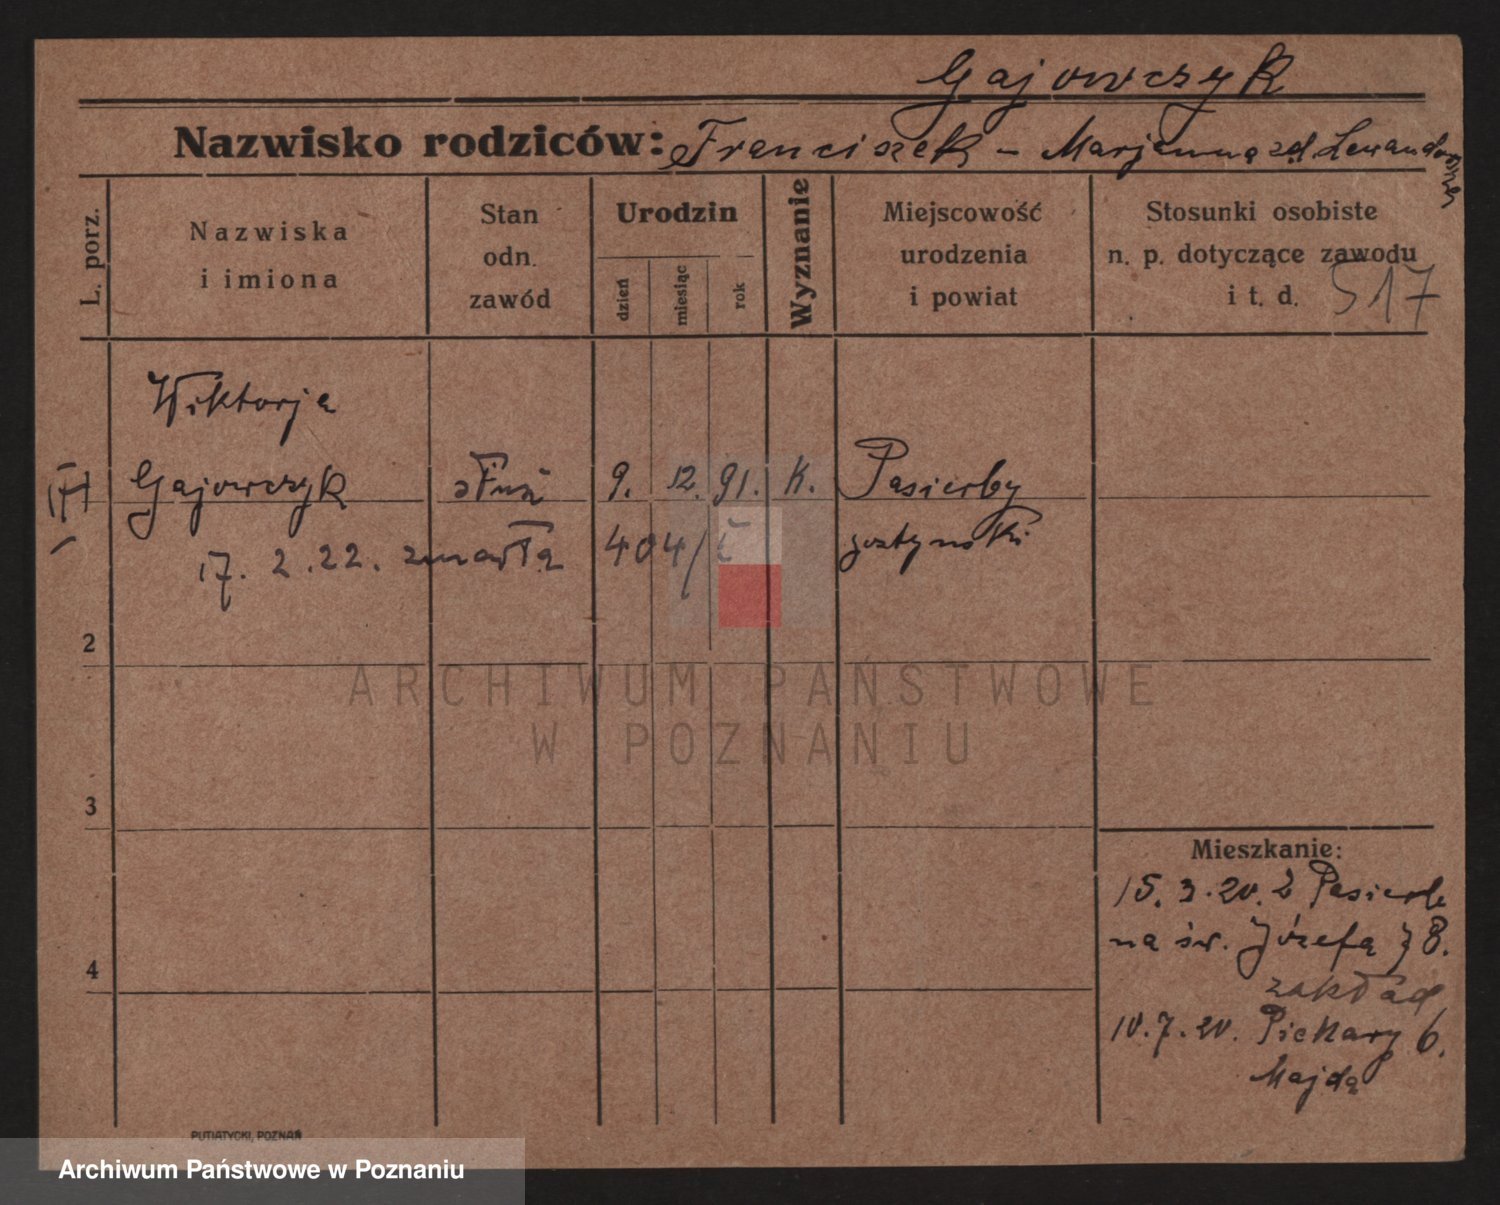 Gajowczyk
Nazwisko rodziców: Franciszek – Marjanna zd. Lewandowska
L. porz.
Nazwiska
i imiona
Stan
odn.
zawód
Urodzin
dzień
miesiąc
rok
Wyznanie
Miejscowość
urodzenia
i powiat
Stosunki osobiste
n. p. dotyczące zawodu
i t. d.
517
Wiktorja
Gajowczyk służ 9. 12. 91. K. Pasierby
17. 2. 22. zmarła 404/ gostyński
2
3
4
Mieszkanie:
15. 3. 20. z Pasierb
na św. Józefa 8.
zakład
10. 7. 20. Piekary 6.
Majda
PUTIATYCKI, POZNAŃ
ARCHIWUM PAŃSTWOWE
W POZNANIU
Archiwum Państwowe w Poznaniu